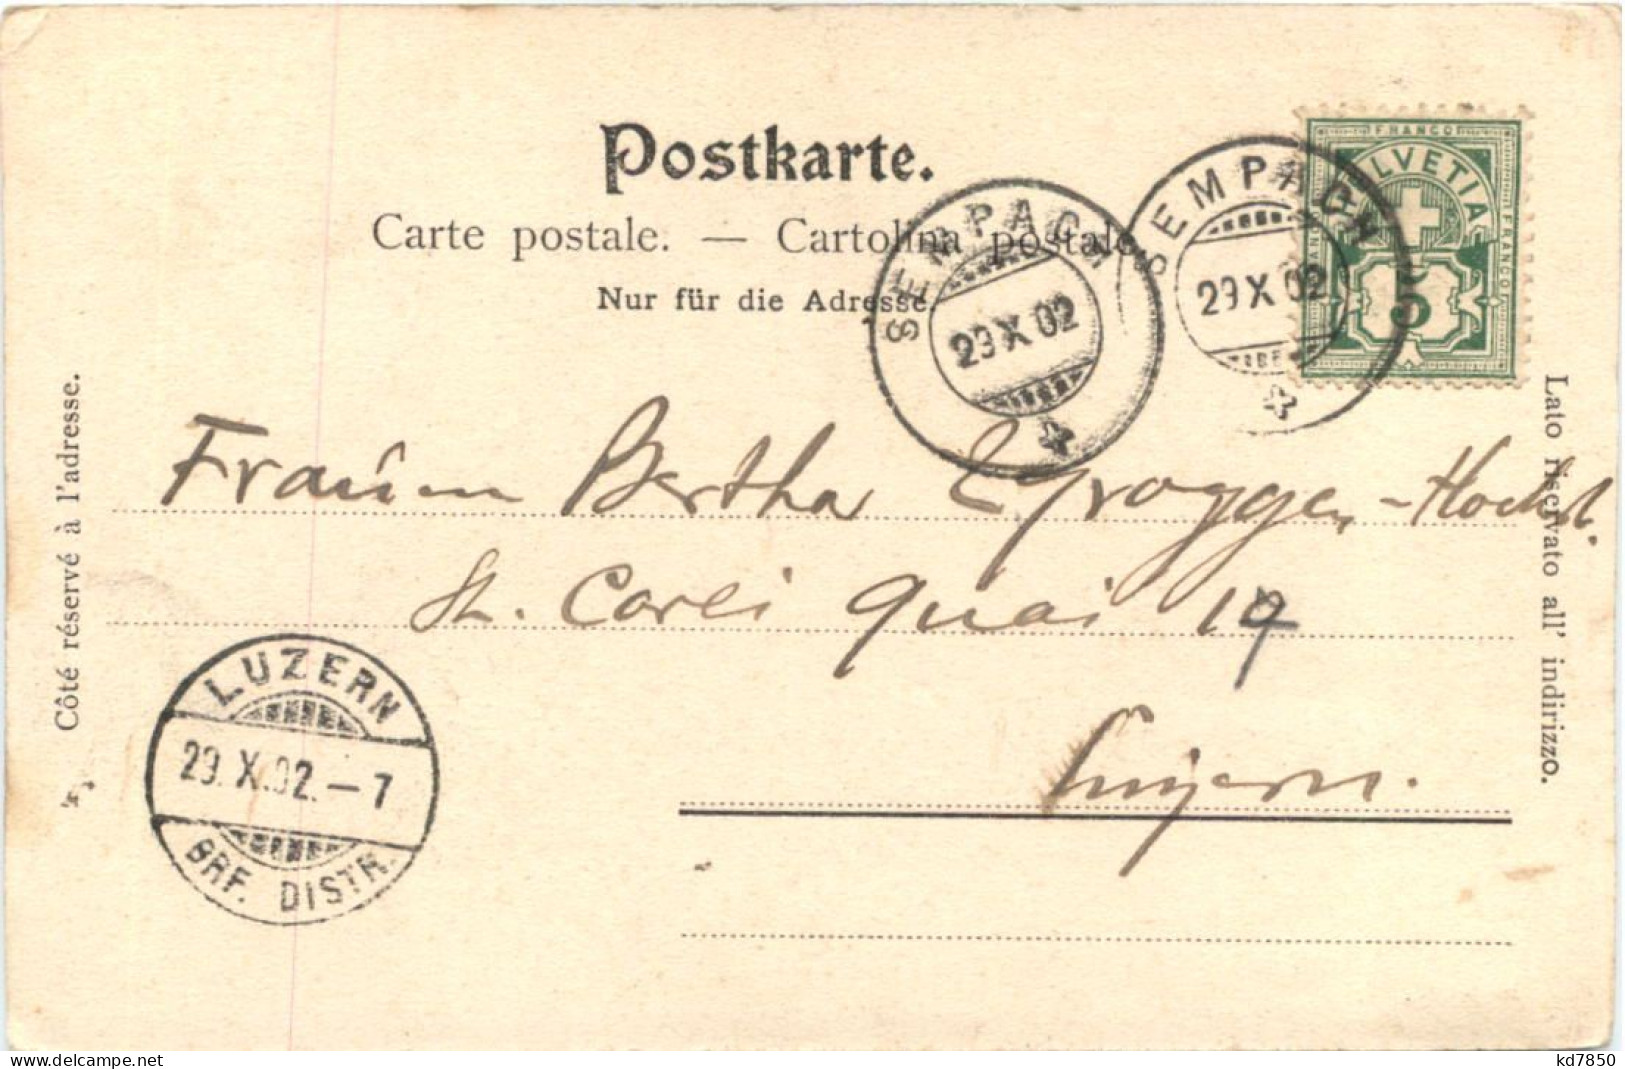 Postkarte.
Carte postale. — Cartolina postale.
Nur für die Adresse.
SEMPACH
29 X 02
SEMPACH
29 X 02
FRANCO
HELVETIA
FRANCO
5
Côté réservé à l'adresse.
Lato riservato all' indirizzo.
Bertha
St. Carli Quai 17
Luzern.
LUZERN
29. X. 02. – 7
BRF. DISTR.
www.delcampe.net
kd7850